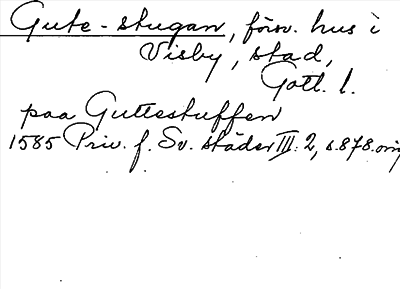 Gute-stugan, försv. hus i
Visby, stad,
Gotl. l.
paa Guttestuffen
1585 Priv. f. Sv. städer III: 2, s. 878. orig